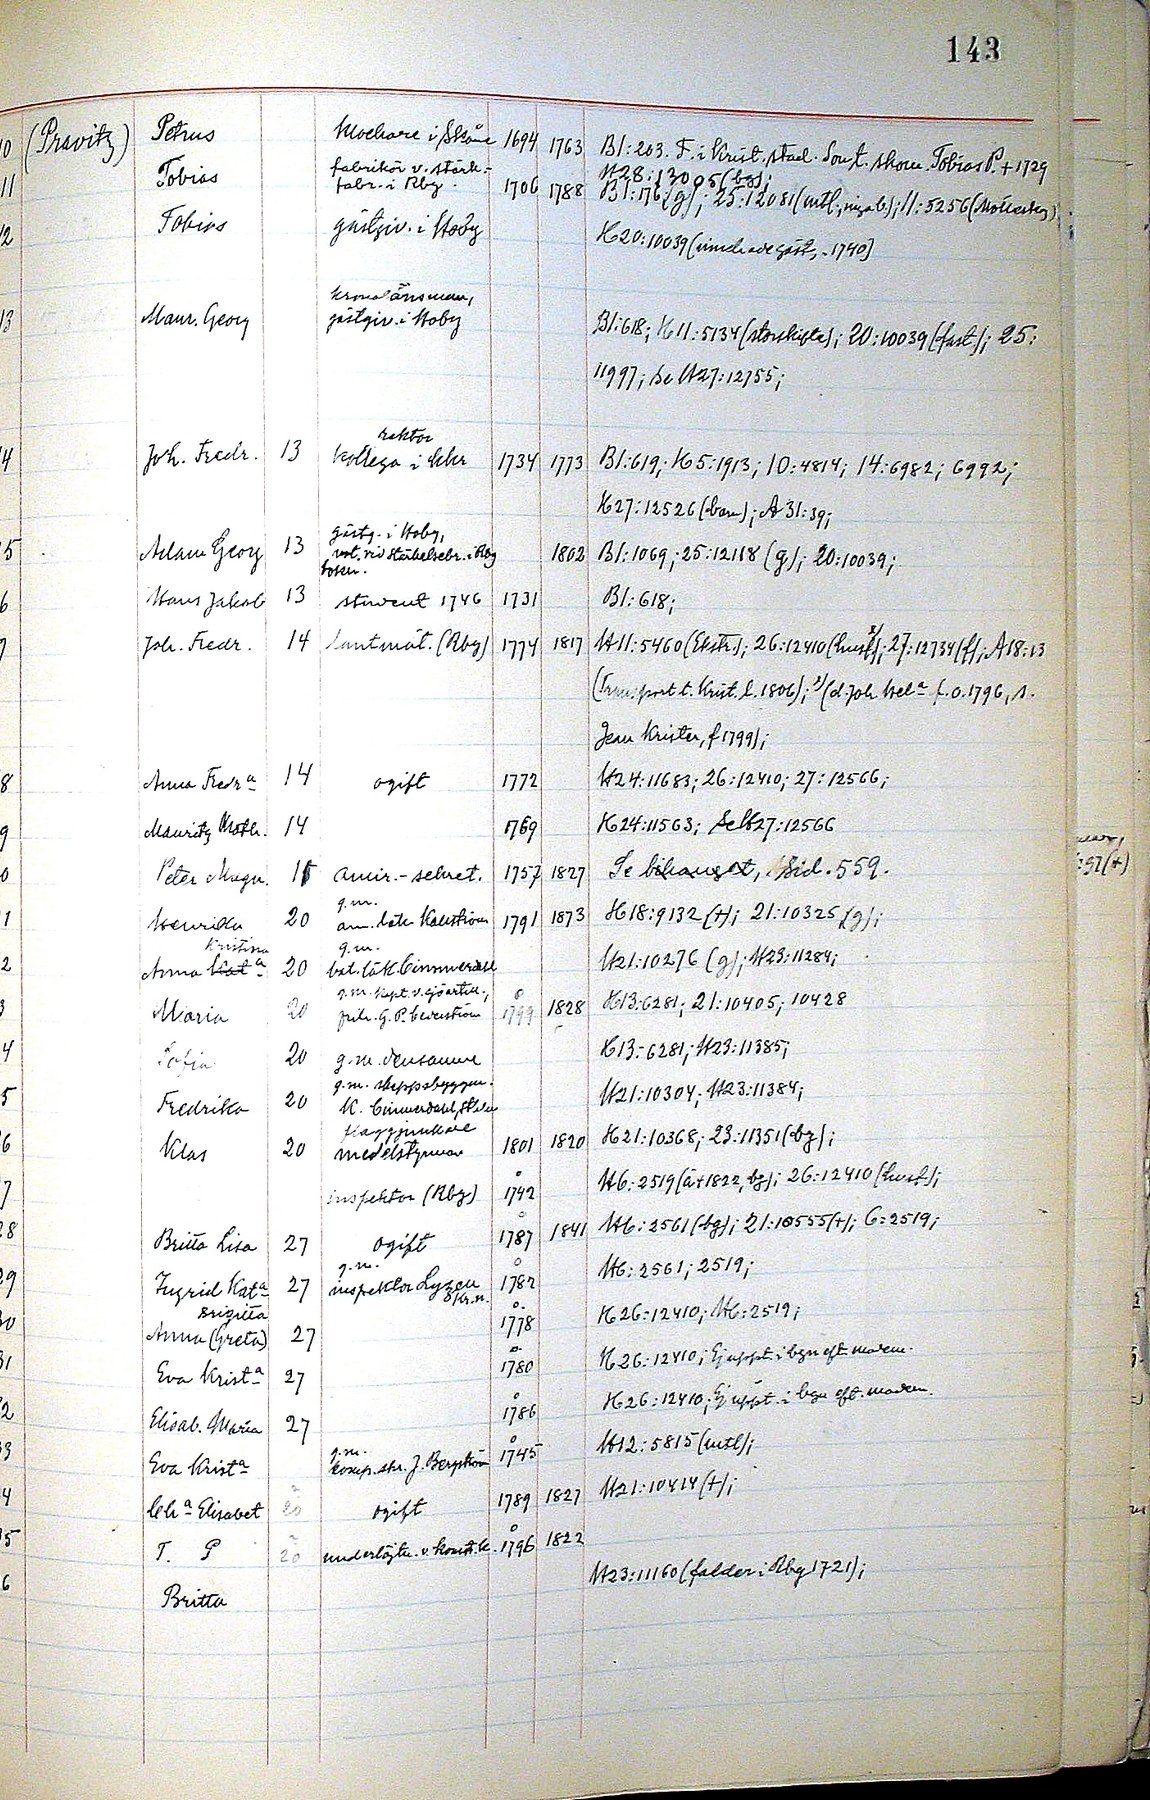 143
10 (Pravitz) Petrus klockare i Skåne 1694 1763 Bl: 203. F. i Krist.stad. Son t. skom. Tobias P. + 1729
H28:13005 (bg);
11 Tobias fabrikör v. stärk.-
fabr. i Rbg. 1706 1788 Bl:176 (g); 25:12081 (mtl; ); 11:5256
12 Tobias gästgiv. i Hoby H20:10039 ( 1740)
13 Maur. Georg kronolänsman,
gästgiv. i Hoby Bl:618; H11:5134 (storskifte); 20:10039 (fast); 25:
11997; Se H27:12755;
14 Joh. Fredr. 13 rektor
kollega i 1734 1773 Bl:619; H5:1913; 10:4814; 14:6982; 6992;
H27:12526 (barn); A31:39;
15 Adam Georg 13 gästg. i Hoby,
vid stärkelsebr. i Rbg 1802 Bl:1069; 25:12118 (g); 20:10039;
16 Hans Jakob 13 student 1746 1731 Bl:618;
17 Joh. Fredr. 14 lantmät. (Rbg) 1774 1817 H11:5460 (Ekstr.); 26:12410 (husf); 27:12734 (f); A18:13
(Transport t. Krist. l. 1806); 1) (d. Joh. Hel:a f. o. 1796, s.
Jean Krister, f 1799);
18 Anna Fredr:a 14 ogift 1772 H24:11683; 26:12410; 27:12566;
19 Mauritz 14 1769 H24:11563; Se H27:12566
20 Peter Magn. 15 amir.-sekret. 1757 1827 Se bihanget, Sid. 559.
21 Henrika 20 g.m.
1791 1873 H18:9132 (+); 21:10325 (g);
22 Anna Kristina Kat:a 20 g.m.
bat.läk. Cimmerdahl H21:10276 (g); H23:11284;
23 Maria 20 g.m. kapt. v. sjöartill.,
frih. G. P. Cederström 1799 1828 H13:6281; 21:10405; 10428
24 Sofia 20 g.m. densamme H13:6281; H23:11385;
25 Fredrika 20 g.m. skeppsbyggm.
K. Cimmerdahl, H21:10304; H23:11384;
26 Klas 20 flaggjunkare
medelstyrman 1801 1820 H21:10368; 23:11351 (bg);
27 inspektor (Rbg) 1742 H6:2519 (ä+1822, bg); 26:12410 (husf.);
28 Britta Lisa 27 ogift 1787 1841 H6:2561 (bg); 21:10555 (+); 6:2519;
29 Ingrid Kat:a 27 g.m.
inspektor Lyzen 1782 H6:2561; 2519;
30 Brigitta
Anna (Greta) 27 1778 H26:12410; H6:2519;
31 Eva Krist:a 27 1780 H26:12410; Ej uppt. i bgn eft. modern.
32 Elisab. Maria 27 1786 H26:12410; Ej uppt. i bgn eft. modern.
33 Eva Krist:a g.m.
J. Bergström 1745 H12:5815 (mtl);
34 Ch:a Elisabet 20 ogift 1789 1827 H21:10414 (+);
35 T. P 20 underlöjtn. v. 1796 1822
36 Britta H23:11160 (fadder i Rbg 1721);